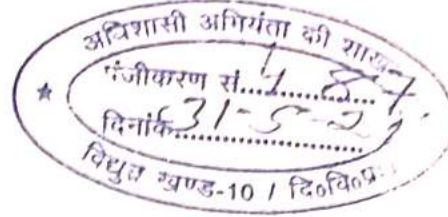 अधिशासी अभियंता की शाखा
पंजीकरण सं.
दिनांक 31-5-2
विद्युत खण्ड-10 / दि०वि०प्र०